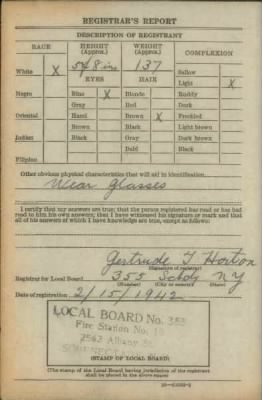 REGISTRAR'S REPORT
DESCRIPTION OF REGISTRANT
RACE HEIGHT (Approx.) WEIGHT (Approx.) COMPLEXION
5 ft 8 ins 137
White X Sallow
EYES HAIR Light X
Negro Blue X Blonde Ruddy
Gray Red Dark
Oriental Hazel Brown X Freckled
Brown Black Light brown
Indian Black Gray Dark brown
Bald Black
Filipino
Other obvious physical characteristics that will aid in identification
Wear glasses
I certify that my answers are true; that the person registered has read or has had
read to him his own answers; that I have witnessed his signature or mark and that
all of his answers of which I have knowledge are true, except as follows:
Gertrude T Horton
(Signature of registrar)
Registrar for Local Board 355 Schdy NY
(Number) (City or county) (State)
Date of registration 2/15/1942
LOCAL BOARD No. 355
Fire Station No.
2563 Albany St.
SCHENECTADY
(STAMP OF LOCAL BOARD)
(The stamp of the Local Board having jurisdiction of the registrant
shall be placed in the above space)